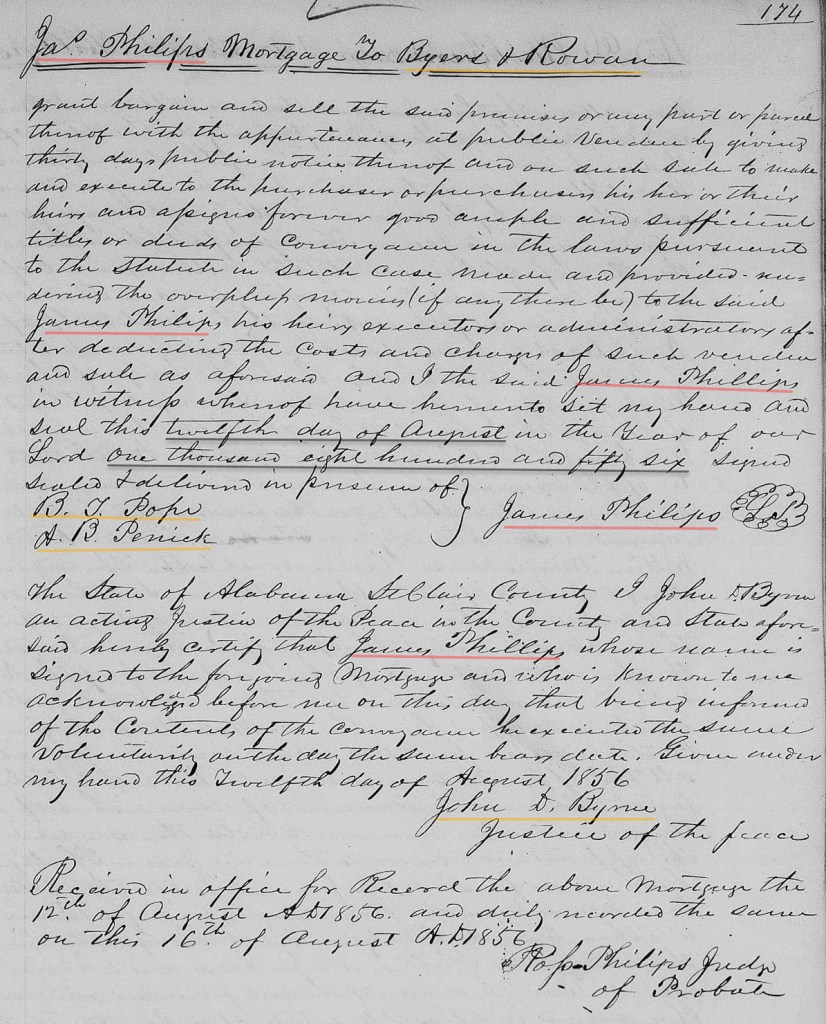 174
Jas. Philips Mortgage To Byers & Rowan
grant bargain and sell the said premises or any part or parcel
thereof with the appurtenances at public Vendue by giving
thirty days public notice thereof and on such sale to make
and execute to the purchaser or purchasers his her or their
heirs and assigns forever good ample and sufficient
titles or deeds of Conveyance in the laws pursuant
to the Statute in such case made and provided ren-
dering the overplus monies (if any there be) to the said
James Philips his heirs executors or administrators af-
ter deducting the Costs and charges of such vendue
and sale as aforesaid and I the said James Phillips
in witness whereof have hereunto set my hand and
seal this twelfth day of August in the Year of our
Lord one thousand eight hundred and fifty six signed
sealed & delivered in presence of
B. T. Pope
James Philips LS
A. B. Penick
The State of Alabama St Clair County I John D. Byrne
an acting Justice of the Peace in the County and State afore-
said hereby certify that James Phillips whose name is
signed to the foregoing Mortgage and who is Known to me
acknowledged before me on this day that being informed
of the Contents of the conveyance he executed the same
Voluntarily on the day the same bears date. Given under
my hand this Twelfth day of August 1856
John D. Byrne
Justice of the peace
Received in office for Record the above Mortgage the
12th. of August AD 1856. and duly recorded the same
on this 16th. of August A.D. 1856
Philips Judge
of Probate